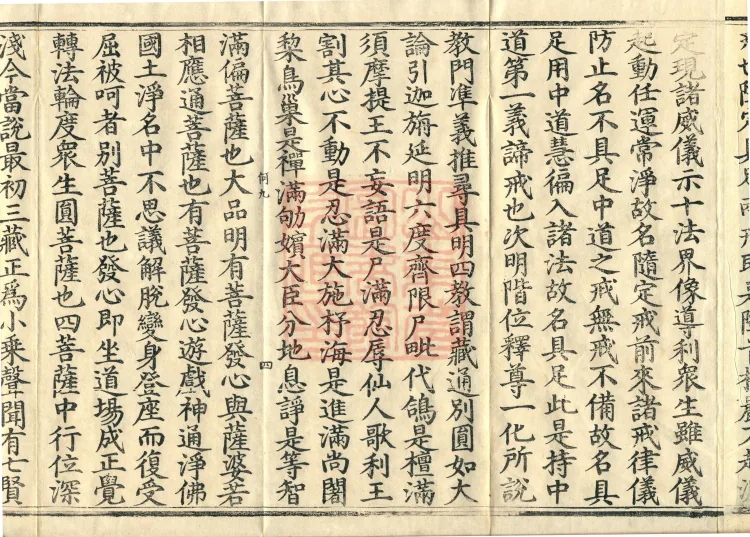 定現諸威儀示十法界像導利眾生雖威儀
起動任運常淨故名隨定戒前來諸戒律儀
防止名不具足中道之戒無戒不備故名具
足用中道慧徧入諸法故名具足此是持中
道第一義諦戒也次明階位釋尊一化所說
教門準義推尋具明四教謂藏通別圓如大
論引迦旃延明六度齊限尸毗代鴿是檀滿
須摩提王不妄語是尸滿忍辱仙人歌利王
割其心不動是忍滿大施抒海是進滿尚闍
黎鳥巢是禪滿劬嬪大臣分地息諍是等智
何九
四
滿偏菩薩也大品明有菩薩發心與薩婆若
相應通菩薩也有菩薩發心遊戲神通淨佛
國土淨名中不思議解脫變身登座而復受
屈被呵者別菩薩也發心即坐道場成正覺
轉法輪度眾生圓菩薩也四菩薩中行位深
淺今當說最初三藏正為小乘聲聞有七賢